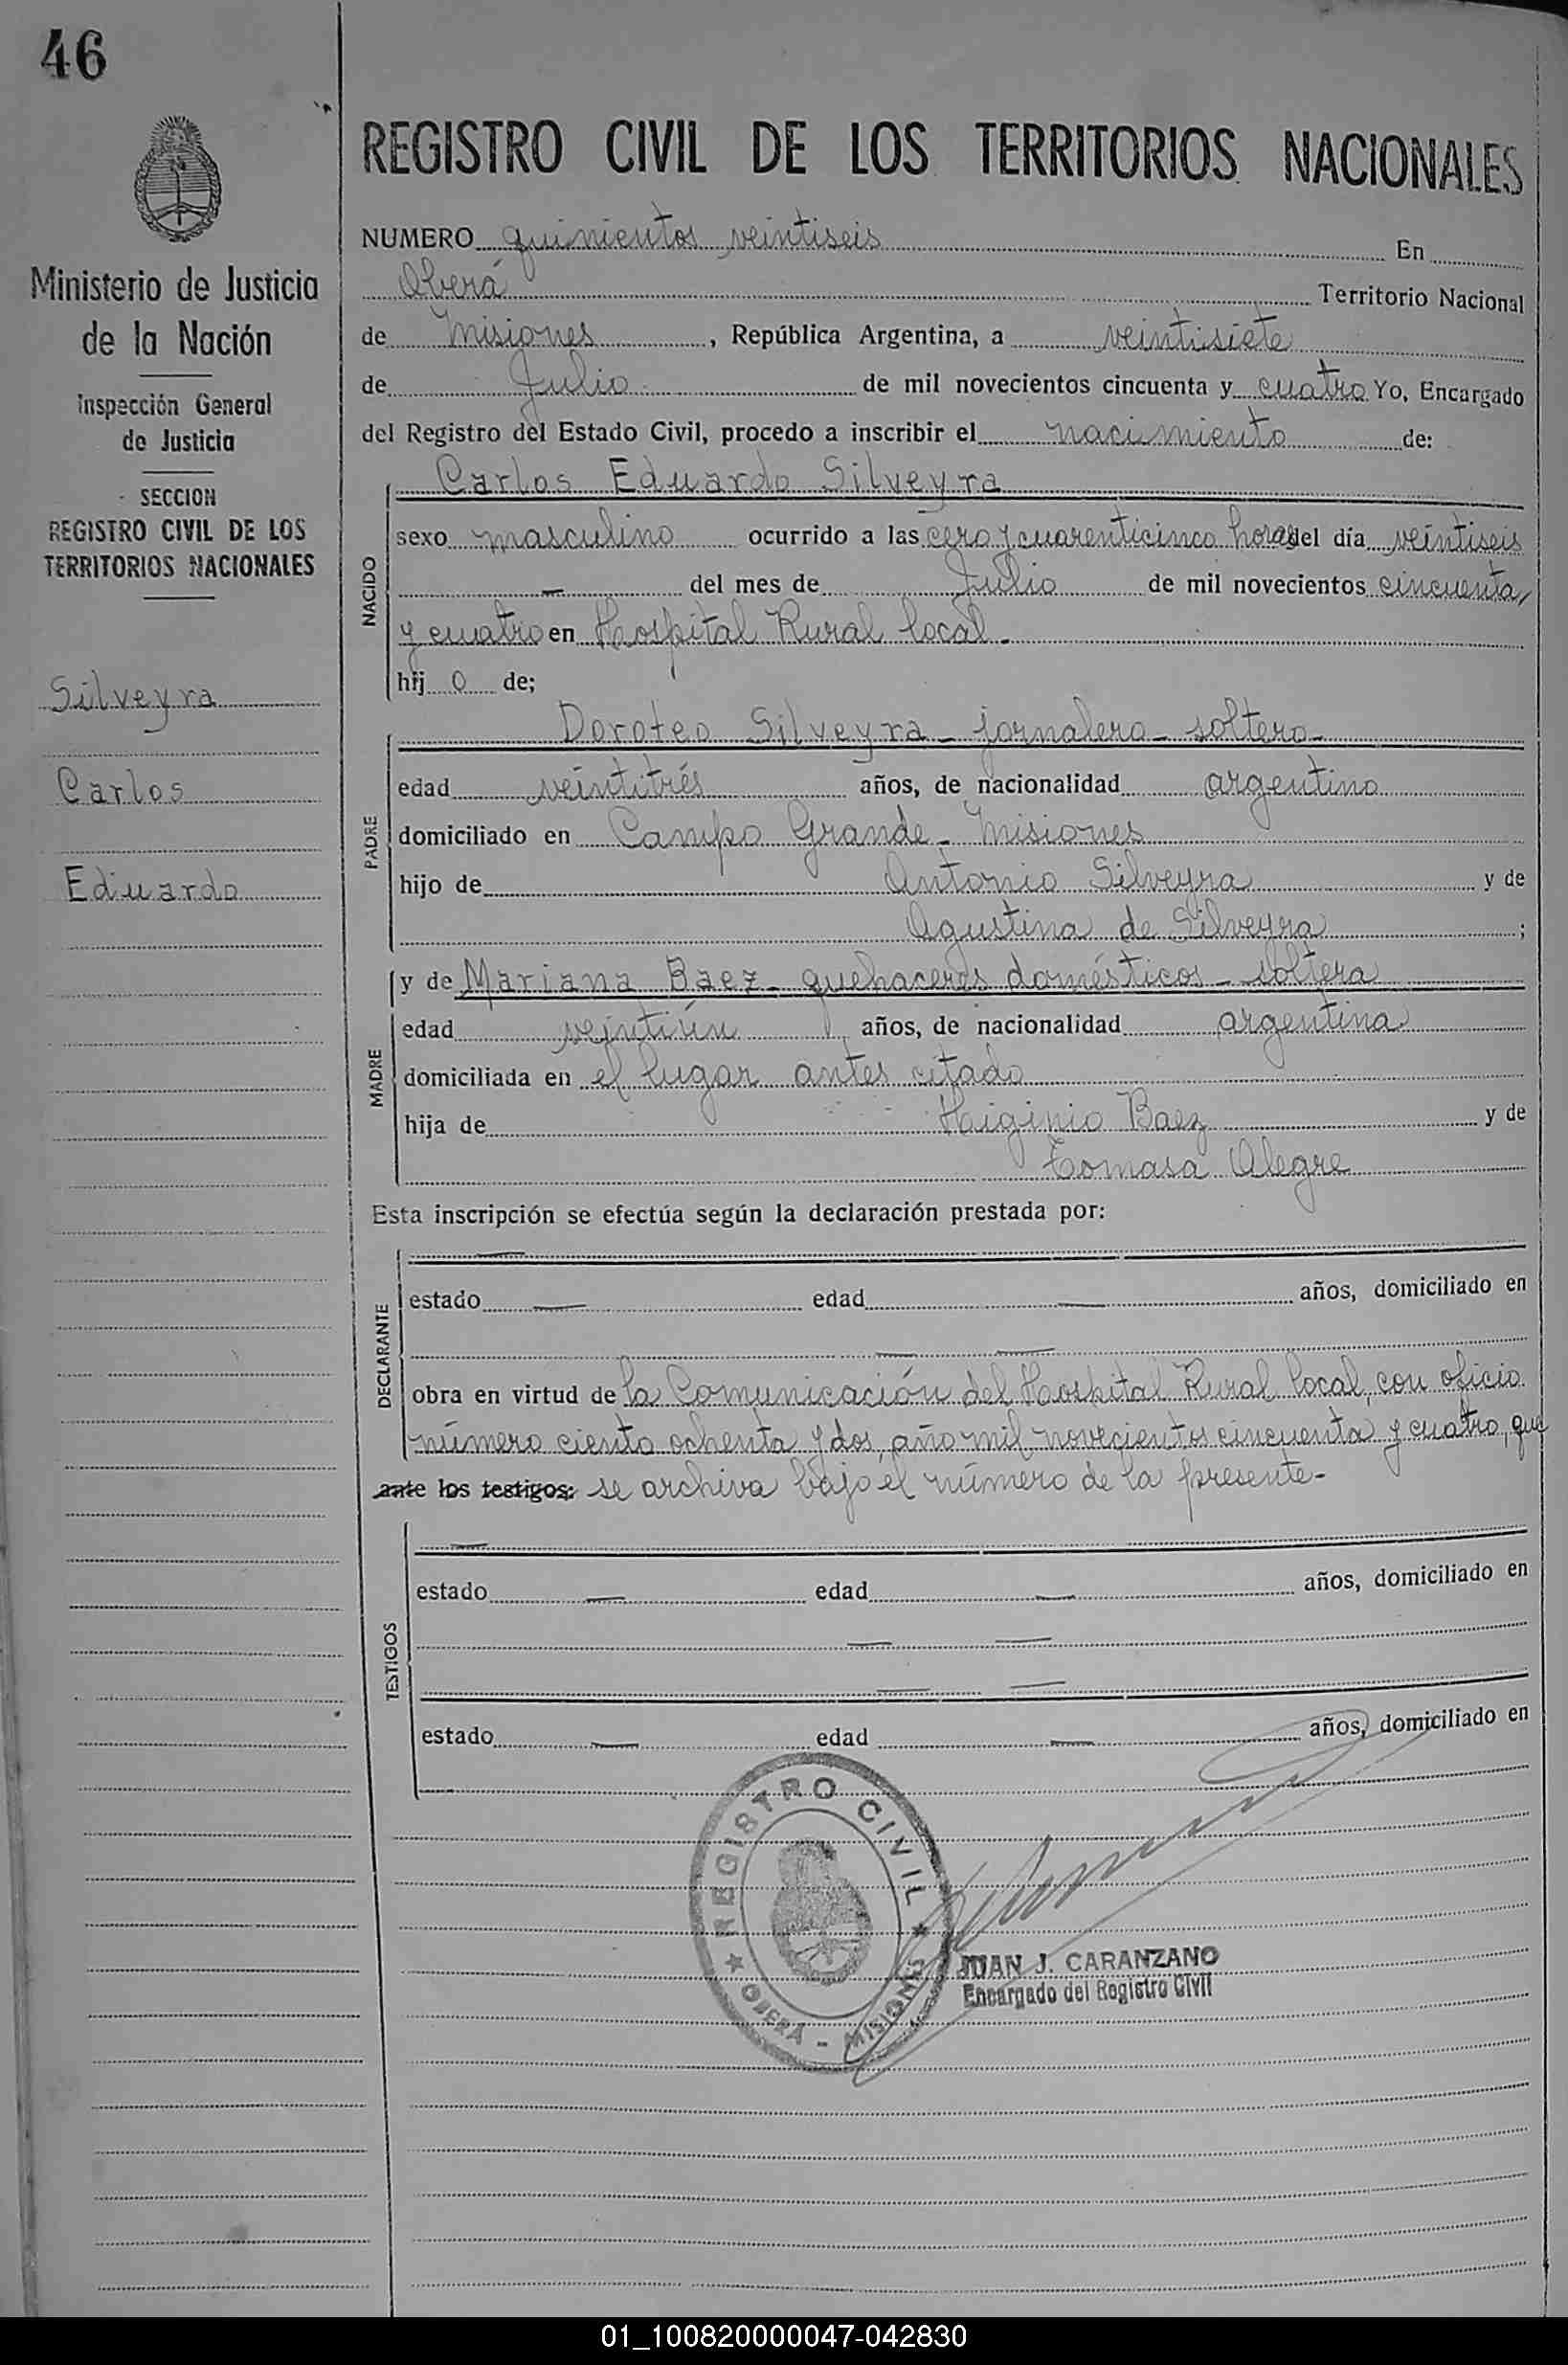 46
Ministerio de Justicia
de la Nación
Inspección General
de Justicia
SECCION
REGISTRO CIVIL DE LOS
TERRITORIOS NACIONALES
Silveyra
Carlos
Eduardo
REGISTRO CIVIL DE LOS TERRITORIOS NACIONALES
NUMERO quinientos veintiseis En
Oberá Territorio Nacional
de Misiones, República Argentina, a veintisiete
de Julio de mil novecientos cincuenta y cuatro Yo, Encargado
del Registro del Estado Civil, procedo a inscribir el nacimiento de:
Carlos Eduardo Silveyra
NACIDO
sexo masculino ocurrido a las cero y cuarenticinco horas del día veintiseis
— del mes de Julio de mil novecientos cincuenta
y cuatro en Hospital Rural local.
hij o de;
Doroteo Silveyra - jornalero - soltero -
PADRE
edad veintitrés años, de nacionalidad argentino
domiciliado en Campo Grande - Misiones
hijo de Antonio Silveyra y de
Agustina de Silveyra ;
y de Mariana Baez - quehaceres domésticos - soltera
MADRE
edad veintiún años, de nacionalidad argentina
domiciliada en el lugar antes citado
hija de Higinio Baez y de
Tomasa Alegre
Esta inscripción se efectúa según la declaración prestada por:
—
DECLARANTE
estado — edad — años, domiciliado en
— —
obra en virtud de la Comunicación del Hospital Rural local, con oficio
número ciento ochenta y dos, año mil novecientos cincuenta y cuatro, que
ante los testigos: se archiva bajo el número de la presente -
—
TESTIGOS
estado — edad — años, domiciliado en
— —
— —
estado — edad — años, domiciliado en
REGISTRO CIVIL
OBERÁ - MISIONES
JUAN J. CARANZANO
Encargado del Registro Civil
01_100820000047-042830